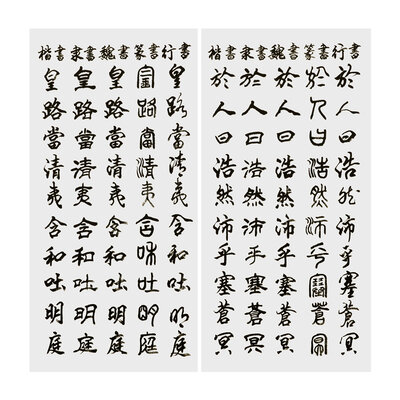 楷書隶書魏書篆書行書
於人曰浩然沛乎塞蒼冥
於人曰浩然沛乎塞蒼冥
於人曰浩然沛乎塞蒼冥
於人曰浩然沛乎塞蒼冥
於人曰浩然沛乎塞蒼冥
楷書隶書魏書篆書行書
皇路當清夷含和吐明庭
皇路當清夷含和吐明庭
皇路當清夷含和吐明庭
皇路當清夷含和吐明庭
皇路當清夷含和吐明庭